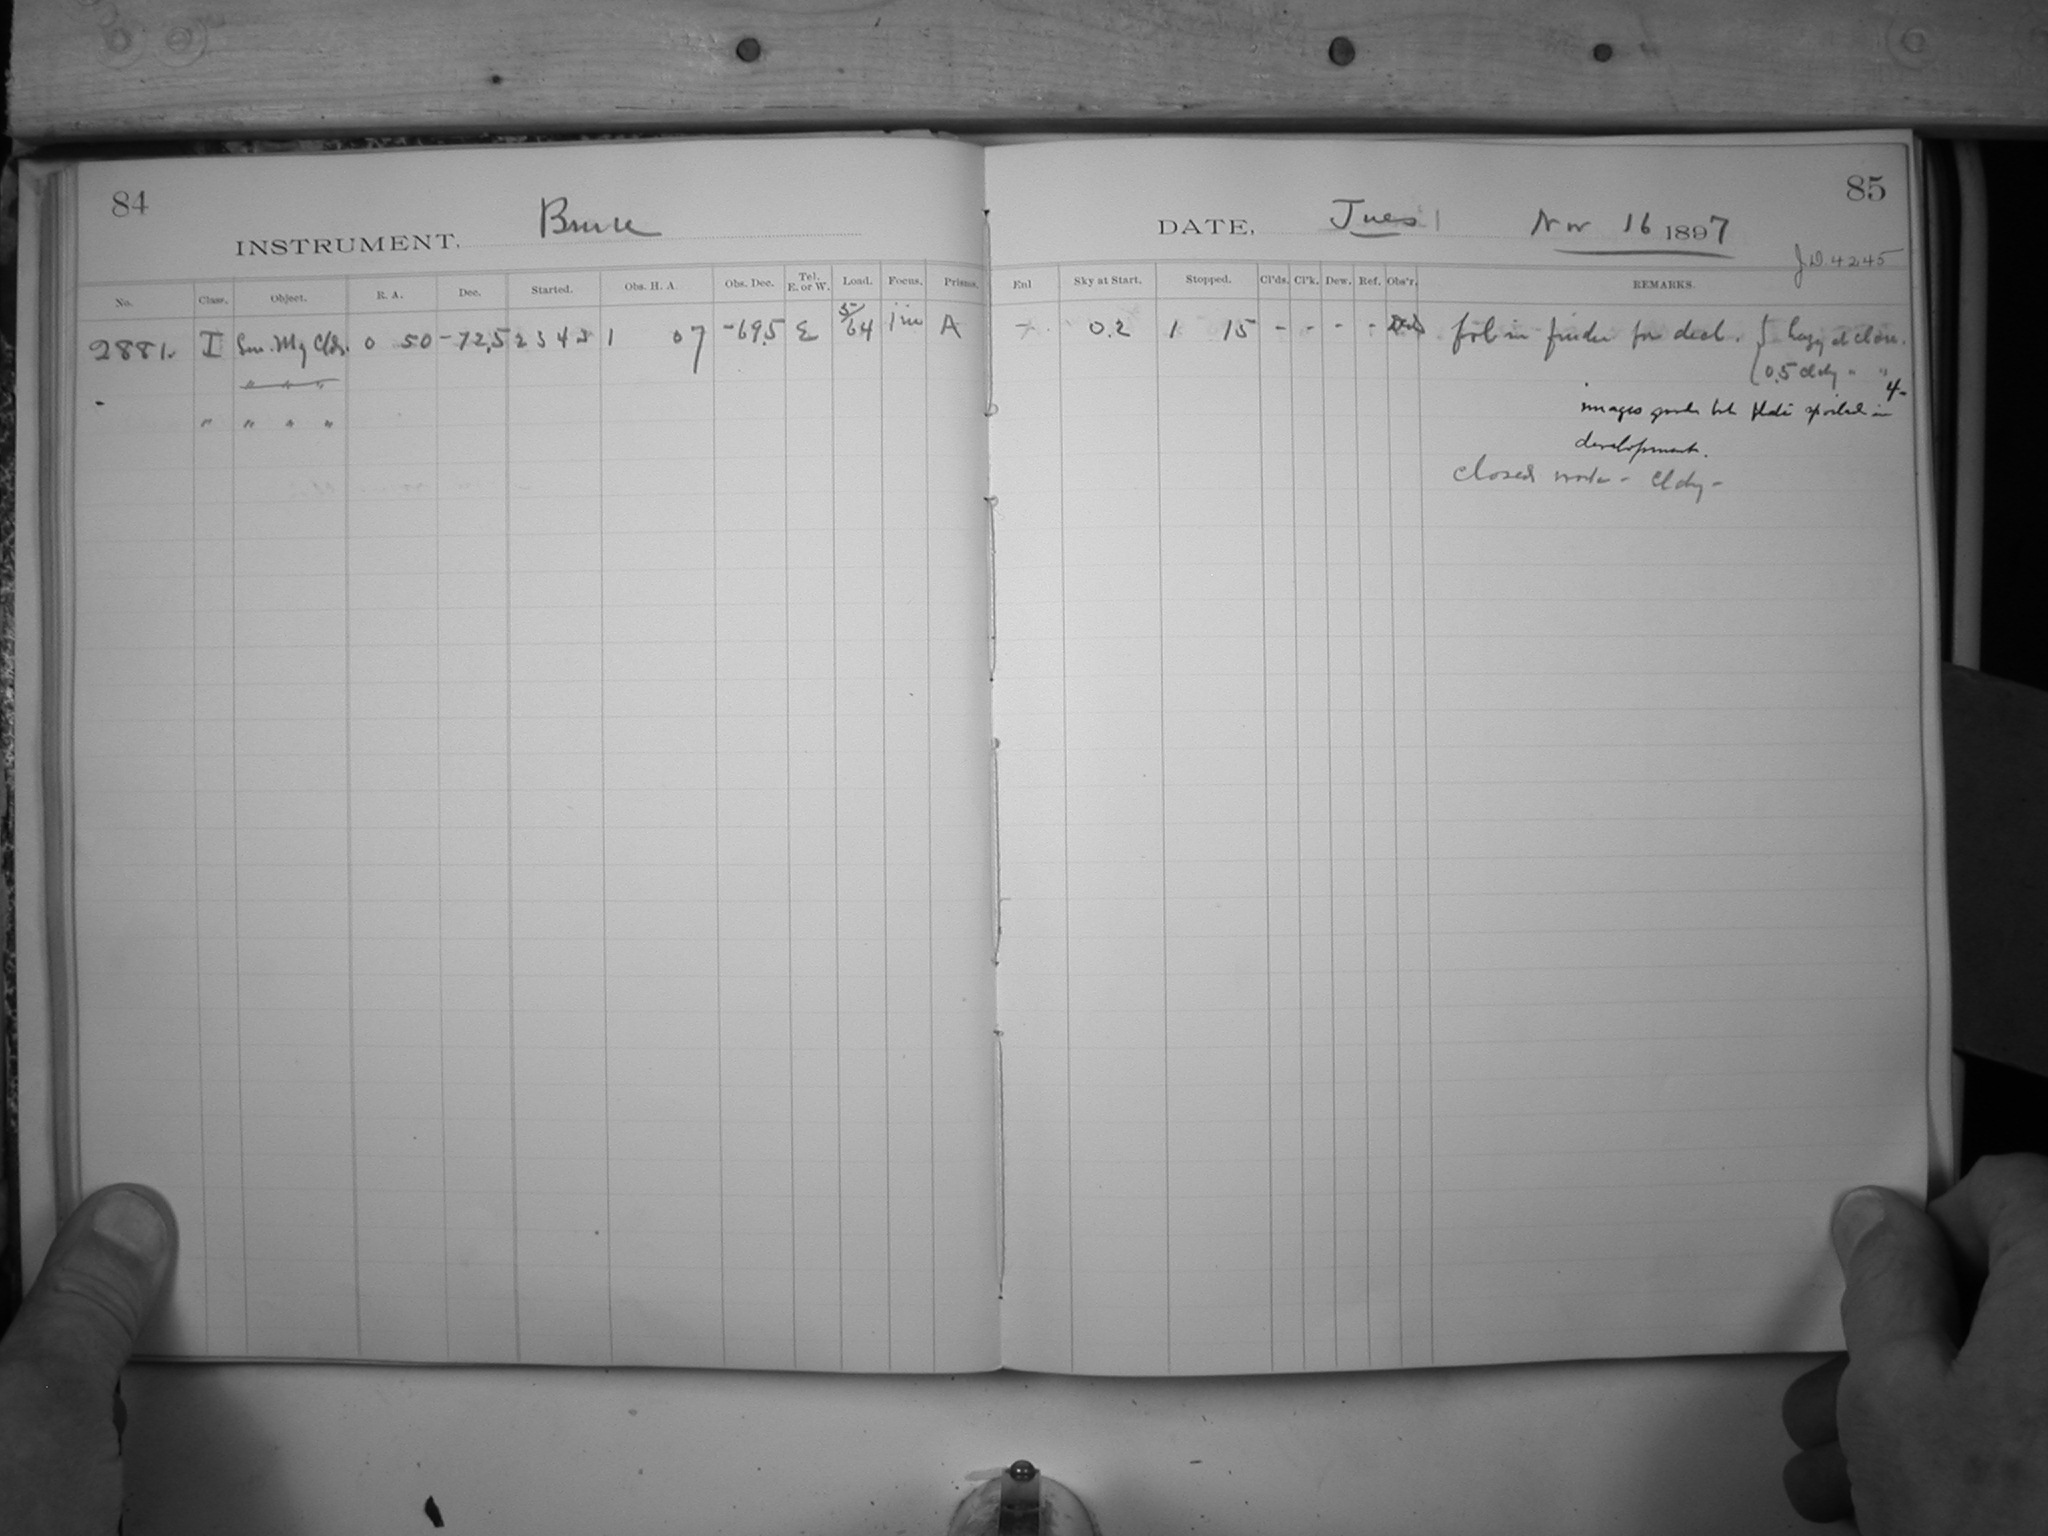 84
INSTRUMENT. Bruce
No. Class. Object. R. A. Dec. Started. Obs. H. A. Obs. Dec. Tel. E. or W. Load. Focus. Prisms.
2881. I Sm. Mg Clds. 0 50 -72,5 23 43 1 07 -69.5 E 5/64 im A
" " "
" " " "
85
DATE, Tues Nov 16 1897
J.D. 4245
Enl Sky at Start. Stopped. Cl'ds. Cl'k. Dew. Ref. Obs'r. REMARKS.
- 0.2 1 15 - - - - fol. in finder for decl. { hazy at close.
0.5 cldy " "
4-
images good but plate spoiled in
development.
Closed work - Cldy -